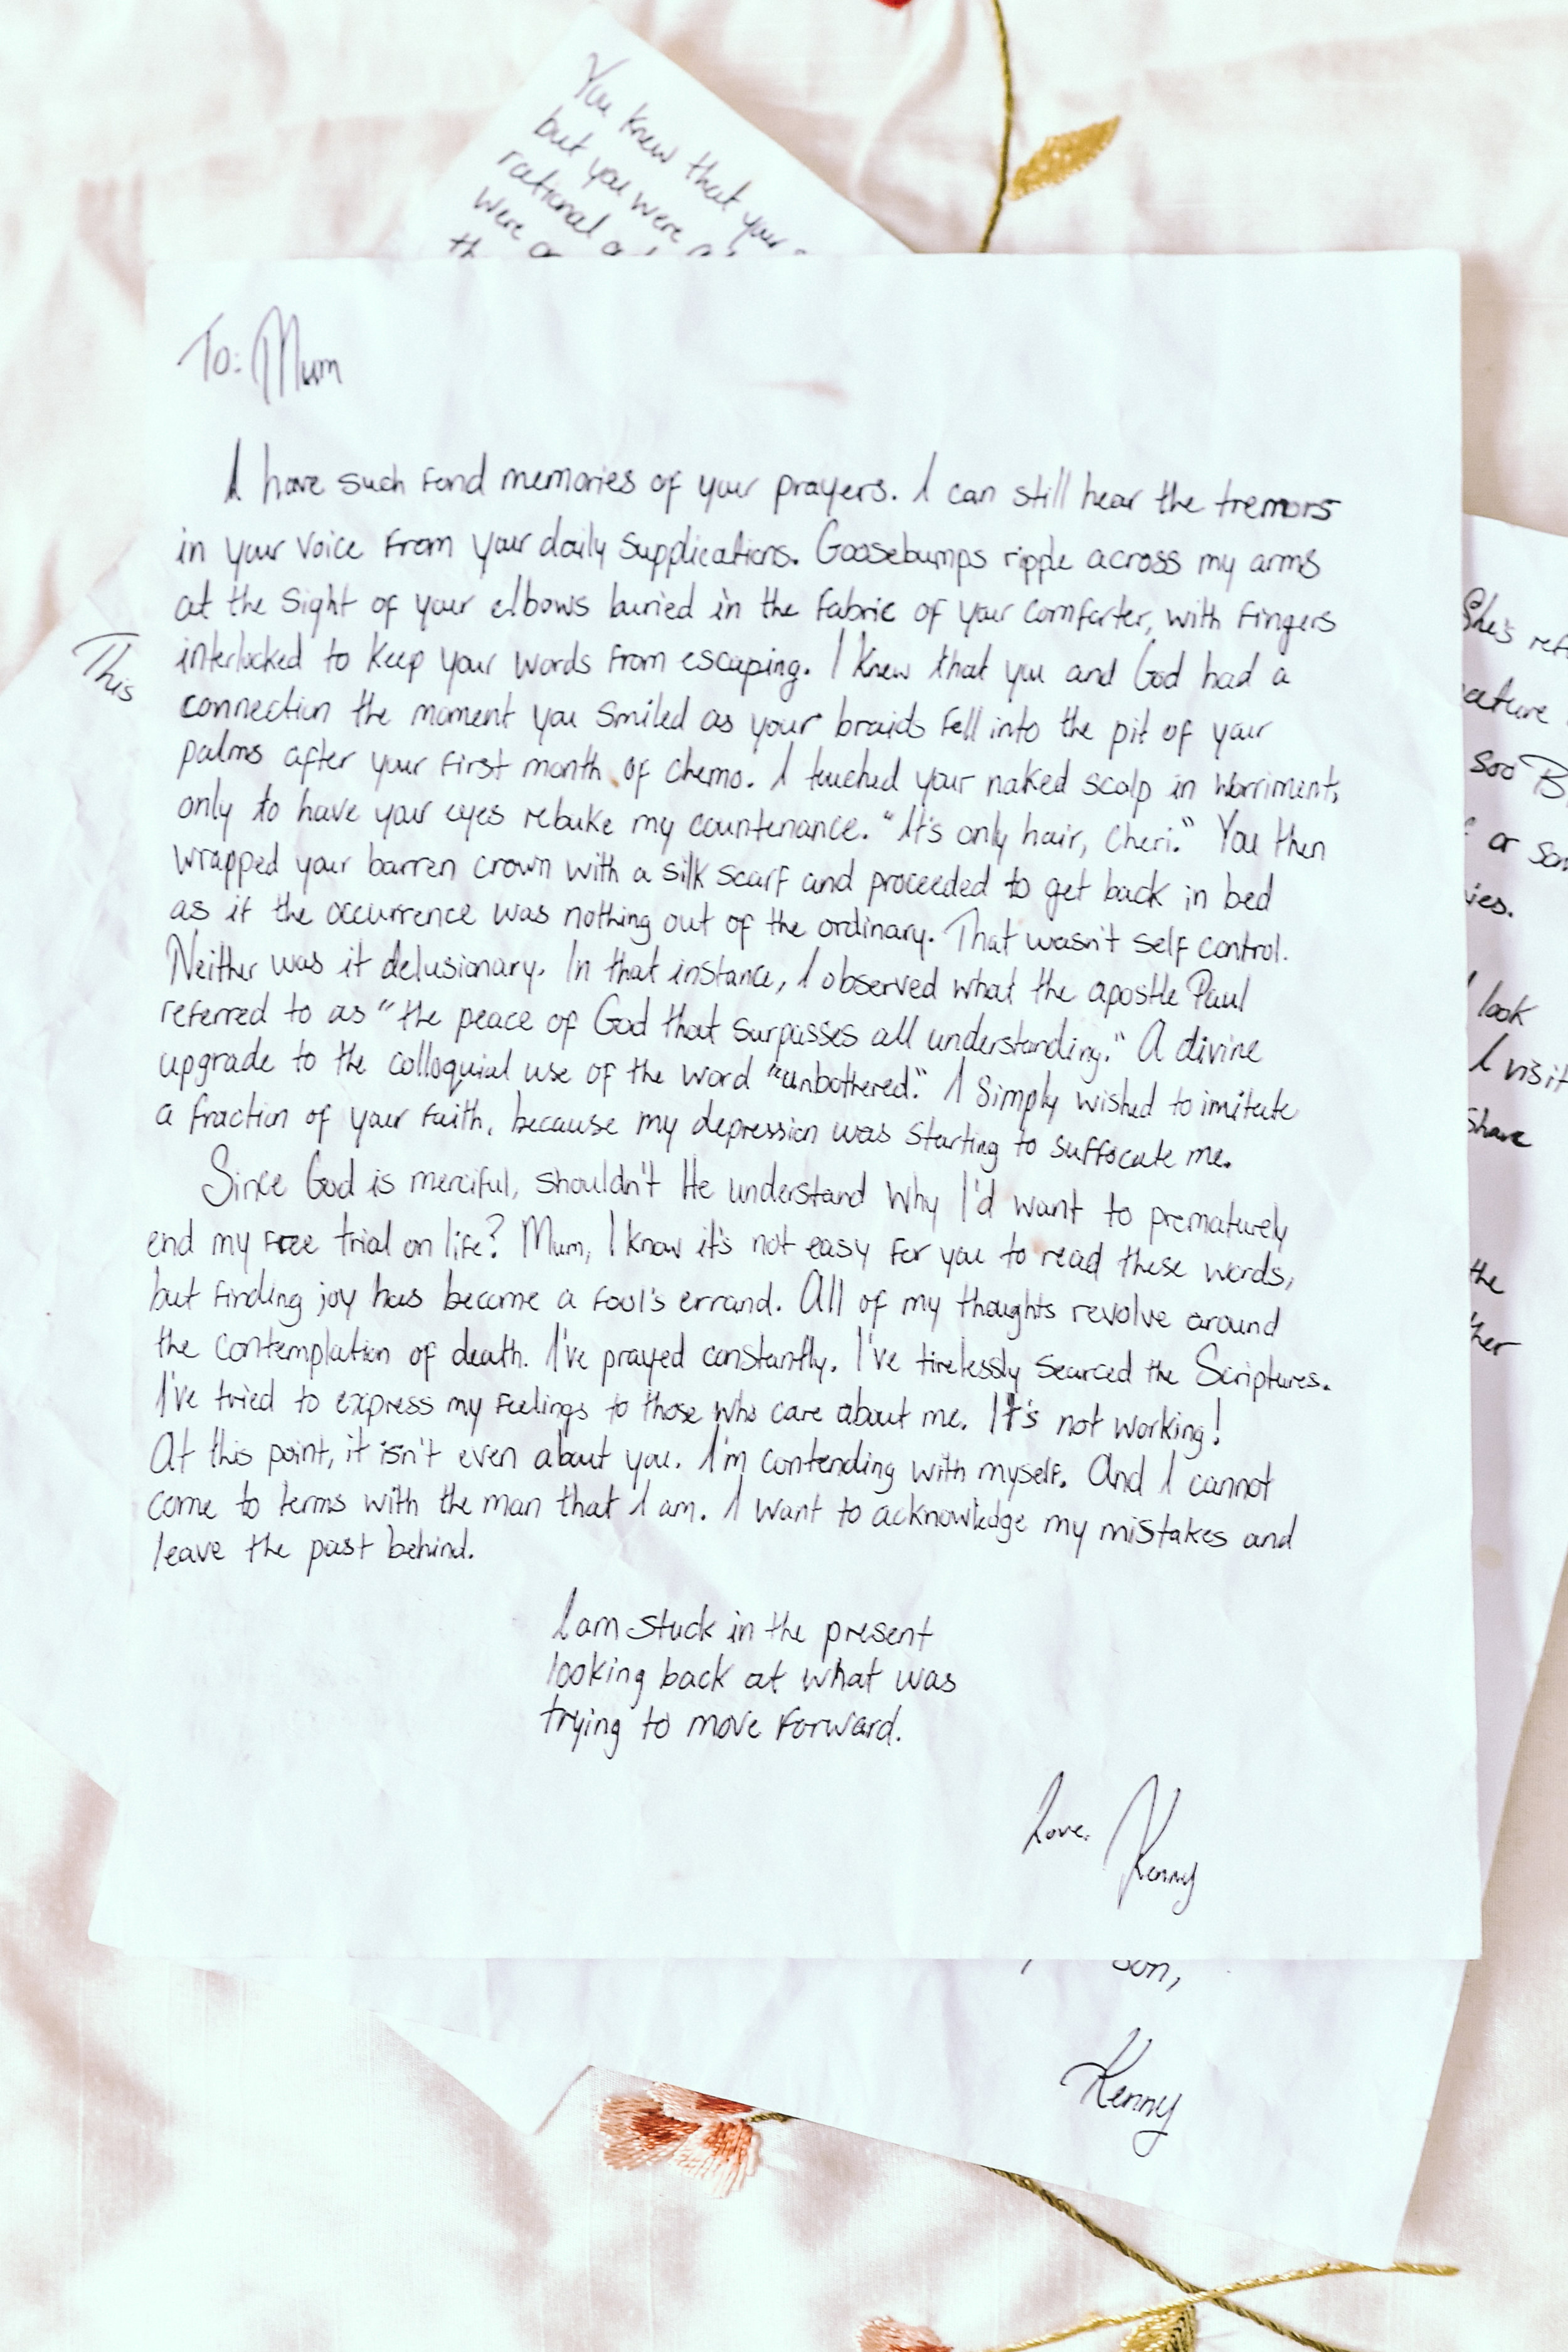 You knew that your
but you were
rational
were
To: Mum
I have such fond memories of your prayers. I can still hear the tremors
in your voice from your daily supplications. Goosebumps ripple across my arms
at the sight of your elbows buried in the fabric of your comforter, with fingers
interlocked to keep your words from escaping. I knew that you and God had a
connection the moment you smiled as your braids fell into the pit of your
palms after your first month of chemo. I touched your naked scalp in worriment,
only to have your eyes rebuke my countenance. "It's only hair, Cheri." You then
wrapped your barren crown with a silk scarf and proceeded to get back in bed
as if the occurrence was nothing out of the ordinary. That wasn't self control.
Neither was it delusionary. In that instance, I observed what the apostle Paul
referred to as "the peace of God that surpasses all understanding." A divine
upgrade to the colloquial use of the word "unbothered." I simply wished to imitate
a fraction of your faith, because my depression was starting to suffocate me.
Since God is merciful, shouldn't He understand why I'd want to prematurely
end my free trial on life? Mum, I know it's not easy for you to read these words,
but finding joy has become a fool's errand. All of my thoughts revolve around
the contemplation of death. I've prayed constantly. I've tirelessly searced the Scriptures.
I've tried to express my feelings to those who care about me. It's not working!
At this point, it isn't even about you. I'm contending with myself. And I cannot
come to terms with the man that I am. I want to acknowledge my mistakes and
leave the past behind.
I am stuck in the present
looking back at what was
trying to move forward.
Love, Kenny
This
She's
soo
or
look
I visit
share
the
son,
Kenny